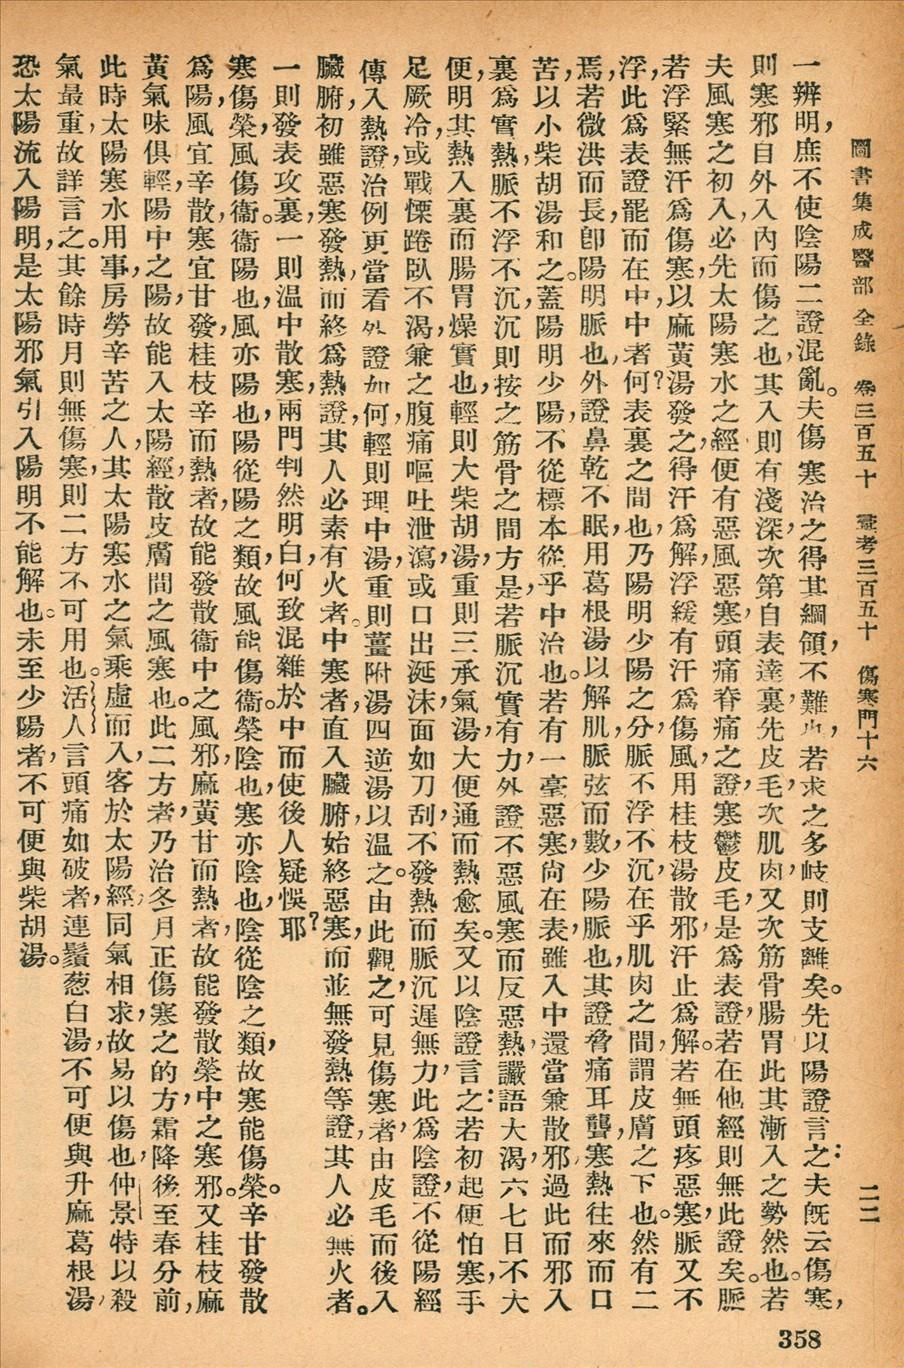 圖書集成醫部全錄　卷三百五十　彙考三百五十　傷寒門十六　二二
一辨明，庶不使陰陽二證混亂。夫傷寒治之得其綱領，不難也，若求之多岐，則支離矣。先以陽證言之：夫旣云傷寒，
則寒邪自外入內而傷之也，其入則有淺深次第，自表達裏，先皮毛，次肌肉，又次筋骨腸胃，此其漸入之勢然也。若
夫風寒之初入，必先太陽寒水之經，便有惡風惡寒，頭痛脊痛之證，寒鬱皮毛，是爲表證，若在他經則無此證矣。脈
若浮緊無汗爲傷寒，以麻黃湯發之，得汗爲解，浮緩有汗爲傷風，用桂枝湯散邪，汗止爲解。若無頭疼惡寒，脈又不
浮，此爲表證罷而在中，中者何？表裏之間也，乃陽明少陽之分，脈不浮不沉，在乎肌肉之間，謂皮膚之下也。然有二
焉，若微洪而長，卽陽明脈也，外證鼻乾不眠，用葛根湯以解肌，脈弦而數，少陽脈也，其證脅痛耳聾，寒熱往來而口
苦，以小柴胡湯和之。蓋陽明少陽，不從標本，從乎中治也。若有一毫惡寒，尙在表，雖入中還當兼散邪，過此而邪入
裏爲實熱，脈不浮不沉，沉則按之筋骨之間方是，若脈沉實有力，外證不惡風寒而反惡熱，讝語大渴，六七日不大
便，明其熱入裏而腸胃燥實也，輕則大柴胡湯，重則三承氣湯，大便通而熱愈矣。又以陰證言之：若初起便怕寒，手
足厥冷，或戰慄踡臥不渴，兼之腹痛嘔吐泄瀉，或口出涎沫，面如刀刮，不發熱而脈沉遲無力，此爲陰證，不從陽經
傳入熱證，治例更當看外證如何，輕則理中湯，重則薑附湯四逆湯以溫之。由此觀之，可見傷寒者，由皮毛而後入
臟腑，初雖惡寒發熱，而終爲熱證，其人必素有火者。中寒者，直入臟腑，始終惡寒，而並無發熱等證，其人必無火者。
一則發表攻裏，一則溫中散寒，兩門判然明白，何致混雜於中而使後人疑悞耶？
寒傷榮，風傷衞。衞陽也，風亦陽也，陽從陽之類，故風能傷衞。榮陰也，寒亦陰也，陰從陰之類，故寒能傷榮。辛甘發散
爲陽，風宜辛散，寒宜甘發，桂枝辛而熱者，故能發散衞中之風邪，麻黃甘而熱者，故能發散榮中之寒邪。又桂枝麻
黃氣味俱輕，陽中之陽，故能入太陽經，散皮膚間之風寒也。此二方者，乃治冬月正傷寒之的方，霜降後至春分前，
此時太陽寒水用事，房勞辛苦之人，其太陽寒水之氣乘虛而入，客於太陽經，同氣相求，故易以傷也，仲景特以殺
氣最重，故詳言之。其餘時月則無傷寒，則二方不可用也。活人言頭痛如破者，連鬚葱白湯，不可便與升麻葛根湯，
恐太陽流入陽明，是太陽邪氣引入陽明不能解也。未至少陽者，不可便與柴胡湯。
358